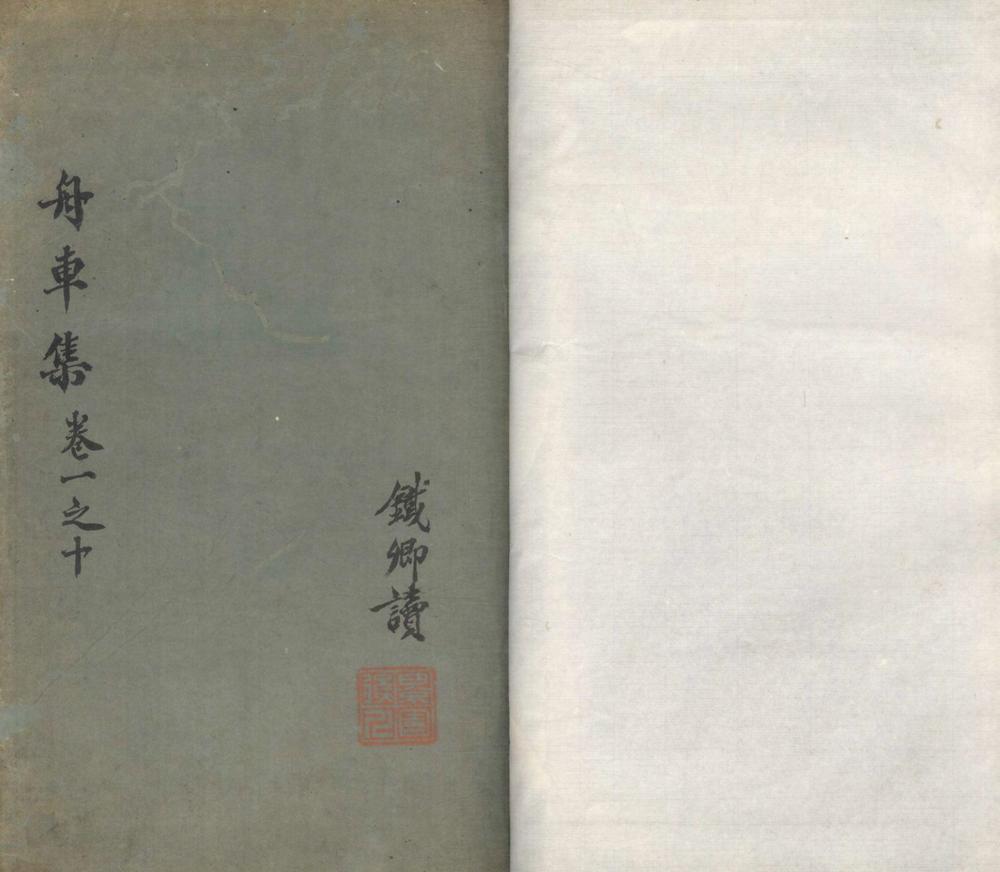 鐵卿讀
舟車集卷一之十